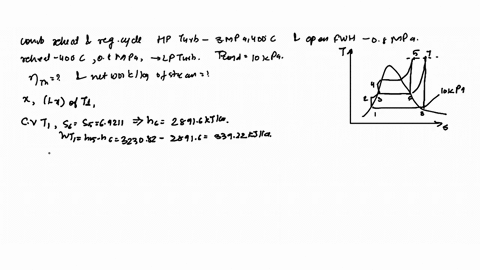 comb reheat & reg. cycle HP Turb - 3 MPa, 400 C & open FWH - 0.8 MPa.
reheat - 400 C, 0.8 MPa, → LP Turb. Pcond = 10 kPa.
ηTh = ? & net work/kg of steam = ?
x, (1-x) of T1,
C.V T1, S6 = S5 = 6.9211 ⇒ h6 = 2891.6 kJ/kg.
WT1 = h5 - h6 = 3230.82 - 2891.6 = 339.22 kJ/kg
T
5
7
4
2
3
6
10 kPa
1
8
S